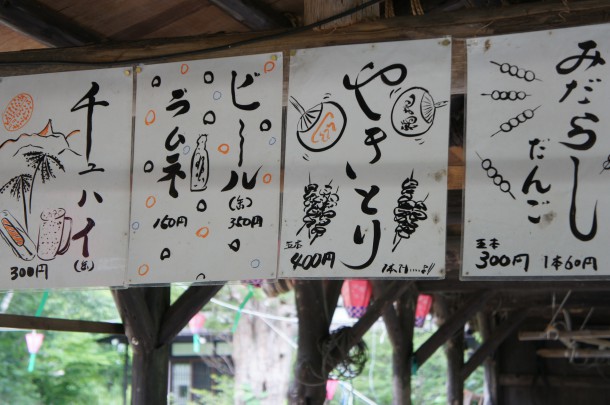 チューハイ
(缶)
300円
ビール
(缶)
350円
ラムネ
150円
やきとり
五本
400円
みだらし
だんご
五本
300円
1本60円